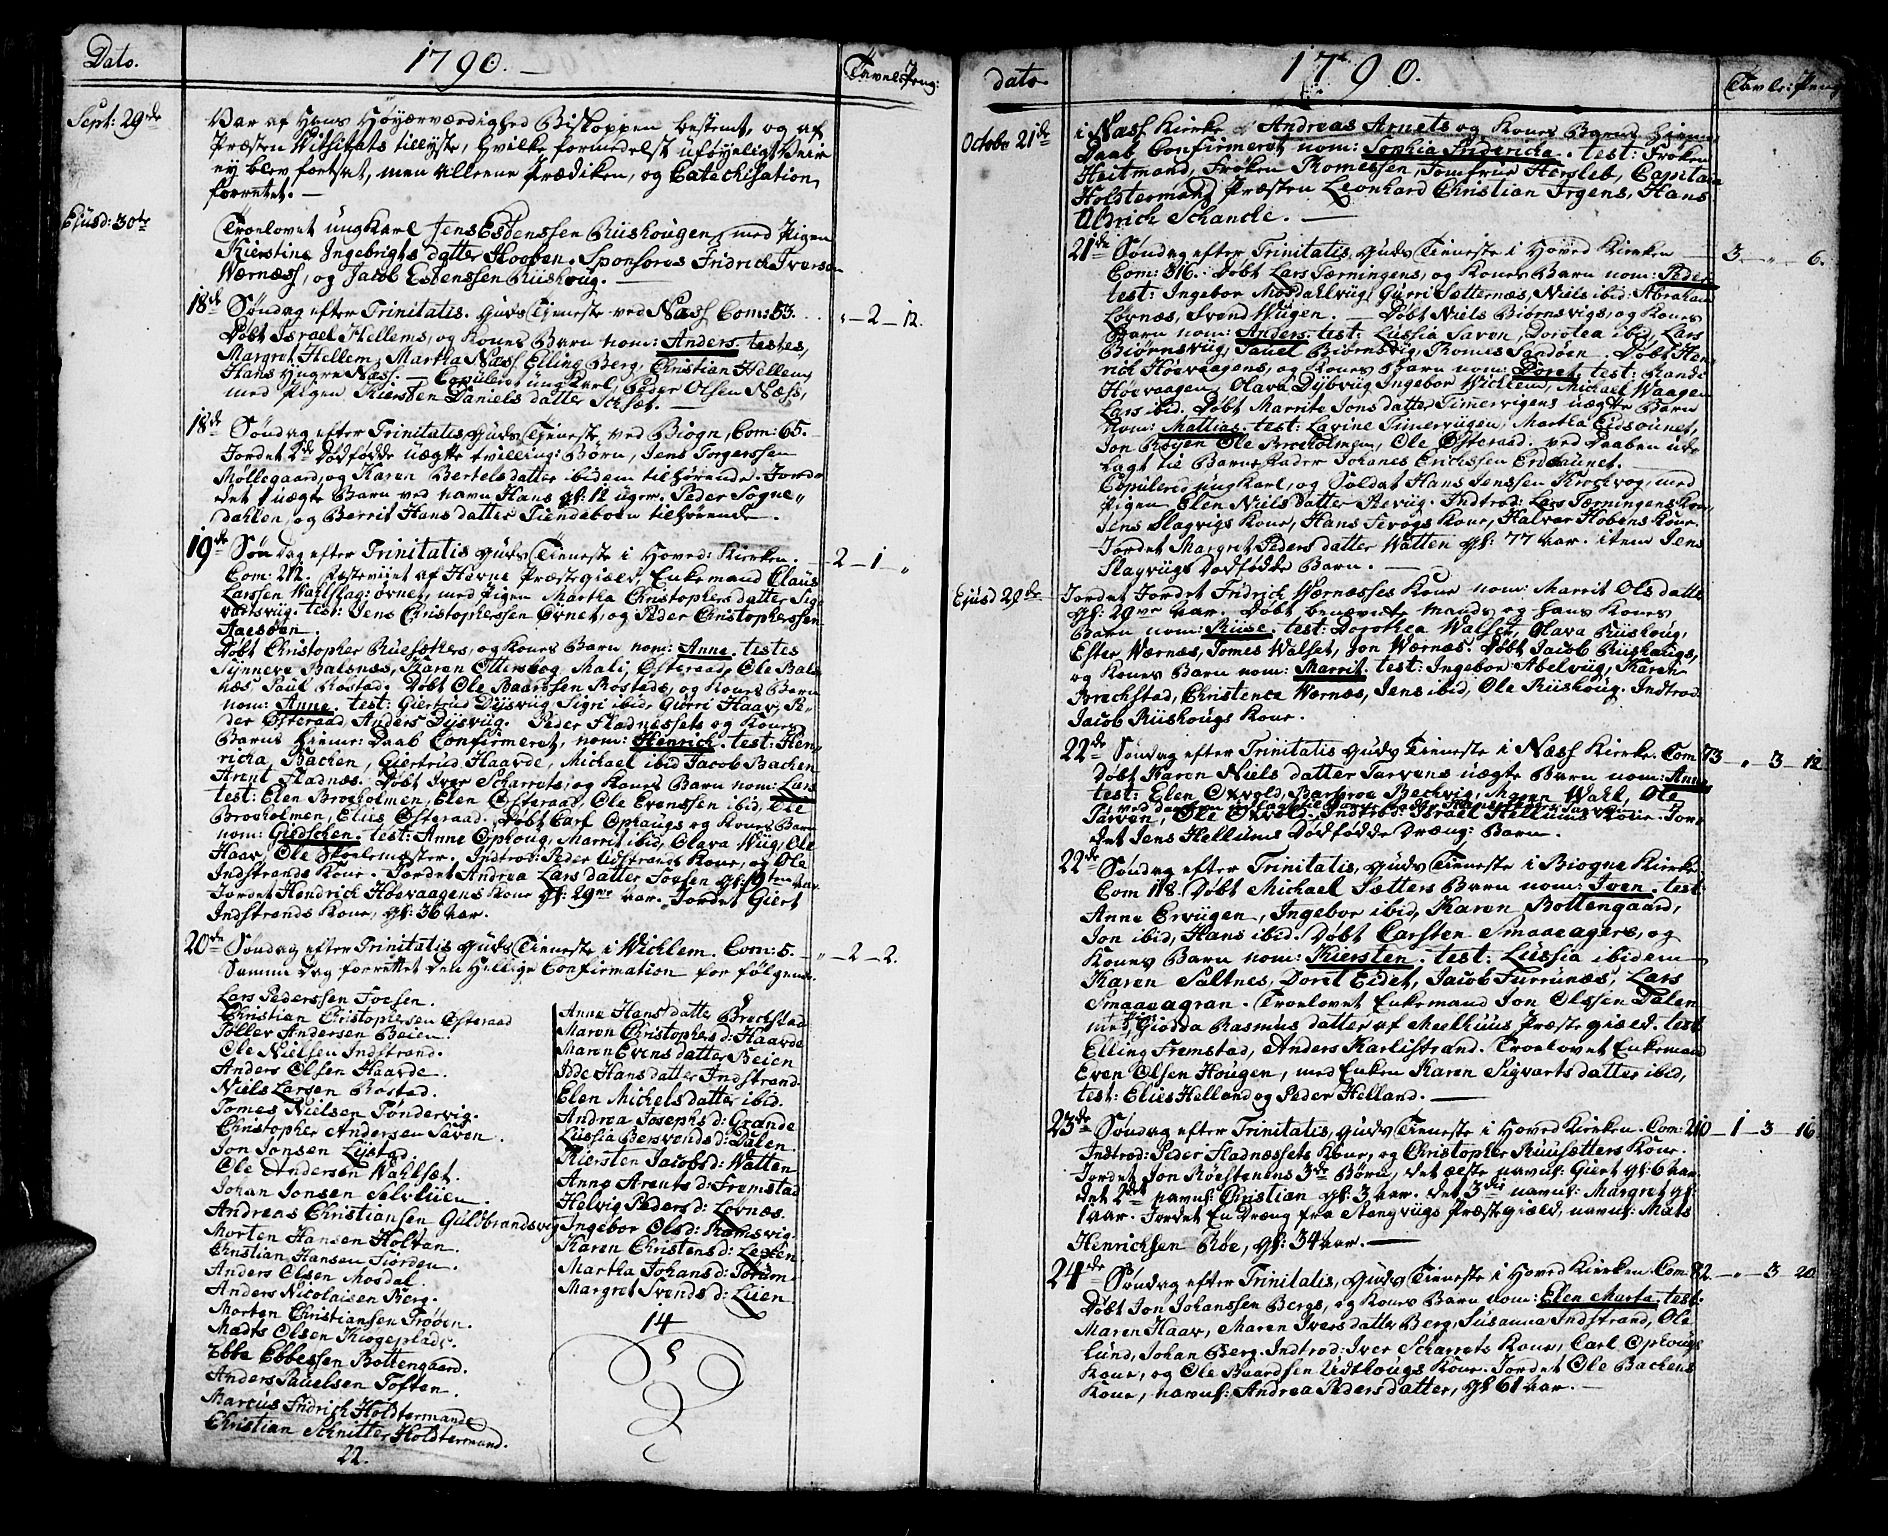 Dato.
1790.
Tavle: Peng:
Sept: 29de
Var af Hans Høyærværdighed Biskoppen bestemt, og af
Præsten Visitats tillyste, hvilke formedelst uføyeligt Veir
ey blev fortsat, men alleene Prædiken, og Catechisation
forrettet.
Ejusd: 30te
Troelovet ungkarl Jens Esbenssen Riishougen, med Pigen
Kierstine Ingebrigts datter Hooben. Sponsores Fridrich Iversen
Wærnæss, og Jacob Esbenssen Riishoug.
18de Søndag efter Trinitatis. Guds Tjeneste ved Næss Com: 53.
" - 2 - 12.
Døbt Israel Hellems, og Kones Barn nom: Anders. testes,
Margret Hellem, Martha Næss, Elling Berg, Christian Hellem,
Hans Næss. Copuleret ungkarl, Peder Olsen Næss,
med Pigen Kiersten Daniels datter
18de Søndag efter Trinitatis Guds Tjeneste, ved Biogn, Com: 65.
Jordet 2de Dødfødde uægte tvilling: Børn, Jens Torgerssen
Møllegaard, og Karen Bertels datter ibidem tilhørende. Jor-
det 1 uægte Barn ved navn Hans gl: 12 uger. Peder Sogne-
dahlen, og Berrit Hans datter tilhørende.
19de Søndag efter Trinitatis Guds Tieneste i Hoved: Kierken.
2 - 1 - "
Com: 212. af Hevne Præstegield, Enkemand Claus
Larssen Wahlslag: øvnet, med Pigen Martha Christophers datter Sig-
vartsvug. test: Jens Christopherssen Øvnet, og Peder Christopherssen
Aaesøen.
Døbt Christopher Ruesethers, og Kones Barn nom: Anne. testes
Synneve Balsnæs, Karen Ottersbog, Mali Østeraad, Ole Bals-
næs, Paul Rostad. Døbt Ole Baarssen Rostads, og Kones Barn
nom: Anne. test: Giertrud Dijsvug, Sigri ibid, Gurri Haav, Pe-
der Østeraad, Anders Dijsvug. Peder Fladnessets og Kones
Barns Hieme: Daab Confirmeret, nom: Henrich. test: Hen-
richa Bachen, Giertrud Haarde, Michael ibid, Jacob Bachen
Arent Fladnæs. Døbt Iver Scharrets, og Kones Barn nom: Lars
test: Elen Broeholmen, Elen Østeraad, Ole Evenssen ibid, Ole
Broeholmen, Elies Østeraad. Døbt Carl Ophaugs og Kones Barn
nom: Giedschen. test: Anne Ophoug, Marrit ibid, Olava Wug, Ole
Haav, Ole Skoelemæster. Indtrod: Peder Udstrands Kone, og Ole
Indstrands Kone. Jordet Andrea Lars datter gl: 19 aar.
Jordet Hendrich Høevaagens Kone gl: 29 aar. Jordet Giert
Indstrands Kone, gl: 36 aar.
20de Søndag efter Trinitatis Guds Tieneste i Wichlem. Com: 5.
" - 2 - 2.
Samme Dag forrettet den Hellige Confirmation for følgende
Lars Pederssen
Christian Christophersen Østeraad
Toller Andersen Beien.
Ole Nielsen Indstrand.
Anders Olsen Haarde.
Niels Larsen Rostad.
Tomes Nielsen Tøndervig.
Christopher Andersen
Jon Jonsen Lystad.
Ole Andersen Wahlset.
Johan Jonsen Selvliien.
Andreas Christiansen Guldbrandsvig
Morten Hansen Holtan.
Christian Hansen Fiorden.
Anders Olsen Mosdal.
Anders Nicolaisen Berg.
Morten Christiansen Frøen.
Madts Olsen Kiogeplads.
Ebbe Ebbessen Bottengaard.
Anders Pauelsen Toften.
Marcus Fridrich Holdtermand
Christian Schnitter Holdtermand.
22.
Anne Hans datter Brechstad
Maren Christophers d: Haarde
Maren Evens datter Beien
Idde Hans datter Indstrand
Elen Michels datter ibid.
Andrea Josephs d: Grande
Lussia Bersvends d: Dalen
Kiersten Jacobs d: Watten
Anne Arents d: Fremstad
Helvig Peders d: Lovnæs.
Ingebor Ols d: Ramsvig
Karen Christens d:
Martha Johans d:
Margret Svends d: Liien
14
dato.
1790.
Tavle: Peng:
Octobr 21de
i Næss Kierke Andreas Arnets og Kones Barns Hieme
Daab Confirmeret nom: Sophia Fridericha. test: Frøken
Heitmand, Frøken Tomessen, Jomfrue Hersleb, Capitain
Holstermand, Præsten Leonhard Christian Irgens, Hans
Uldrich Schancke.
21de Søndag efter Trinitatis, Guds Tieneste i Hoved Kierken
3 - " - 6.
Com: 316. Døbt Lars Tærningens, og Kones Barn nom: Peder
test: Ingebor Mosdahlvug, Gurri Sætternæs, Niels ibid, Abraham
Lovnæs, Svend Wugen. Døbt Niels Biørnsvigs, og Kones
Barn nom: Anders. test: Lussia Saven, Dorotea ibid, Lars
Biørnsvug, Pauel Biørnsvig, Tomes Sandøen. Døbt Hen-
rich Høevaagens, og Kones Barn nom: Doret, test: Randi
Høevaagen, Olava Dijbvug, Ingebor Wichlem, Michael Waagen
Lars ibid. Døbt Marrite Jons datter uægte Barn
nom: Mattias. test: Lavine Martha Eidsounet,
Jon Bøgen Ole Broeholmen, Ole Østeraad. ved Daaben ud-
lagt til Barne Fader Johanes Erichssen
Copulered ungkarl, og Soldat Hans Jenssen med
Pigen, Elen Niels datter Indtrod: Lars Tærningens Kone,
Jens Slagvigs Kone, Hans Kone, Halvor Hobens Kone.
Jordet Margret Peders datter Watten gl: 77 aar. item Jens
Slagvugs dødfødde Barn.
Ejusd 29de
Jordet Fridrich Wærnæsses Kone nom: Marrit Ols datter
gl: 29 aar. Døbt benævnte Mands og Hans Kones
Barn nom: Riise. test: Dorothea Walset, Olava Riishoug,
Ester Wærnæs, Tomes Walset, Jon Wærnæs. Døbt Jacob Riishougs,
og Kones Barn nom: Marrit. test: Ingebor Abelvug, Karen
Brechstad, Christence Wærnæs, Jens ibid, Ole Riishoug. Indtrod:
Jacob Riishougs Kone.
22de Søndag efter Trinitatis Guds Tieneste i Næss Kierke. Com 73
" - 3 - 12
Døbt Karen Niels datter Tarvens uægte Barn nom: Anne
test: Elen Oxvold, Barbroe Bechvig, Maren Wahl, Ole
Tarven, Ole Oxvold. Indtrod: Israel Hellems Kone. Jor-
det Jens Hellems Dødfødde Dræng: Barn.
22de Søndag efter Trinitatis, Guds Tieneste i Biogne Kierke
Com 118. Døbt Michael Sætters Barn nom: Joen. test:
Anne Ervugen, Ingebor ibid, Karen Bottengaard,
Jon ibid, Hans ibid. Døbt Carsten Smaaeagers, og
Kones Barn nom: Kiersten. test: Lussia ibidem
Karen Saltnes, Doret Eidet, Jacob Furrunæs, Lars
Smaaeagran. Troelovet Enkemand Jon Olssen Dalen
med Giodda Rasmus datter af Meelhuus Præstegield. test:
Elling Fremstad, Anders Karlistrand. Troelovet Enkemand
Even Olsen Hougen, med Enken Karen Sigvarts datter ibid,
test: Elies Helland og Peder Helland.
23de Søndag efter Trinitatis, Guds Tieneste i Hoved Kierken. Com: 210
1 - 3 - 16
Indtrod: Peder Fladnæssets Kone, og Christopher Ruusætters Kone.
Jordet Jon Røestenens 3de Børn, det ælste navnl: Giert gl: 6 aar
det 2det navnl: Christian gl: 3 aar. det 3die navnl: Margret gl:
1 aar. Jordet En Dræng fra Præstegield, navnl: Mats
Henrichsen Røe, gl: 34 aar.
24de Søndag efter Trinitatis, Guds Tieneste i Hoved Kierken. Com 82
" - 3 - 20
Døbt Jon Johanssen Bergs, og Kones Barn nom: Elen Marta. test:
Maren Haav, Maren Ivers datter Berg, Susanna Indstrand, Ole
Lund, Johan Berg. Indtrod: Iver Scharrets Kone, Carl Ophougs
Kone, og Ole Baardsen Udthougs Kone. Jordet Ole Bachens
Kone, navnl: Andrea Peders datter, gl 61 aar.